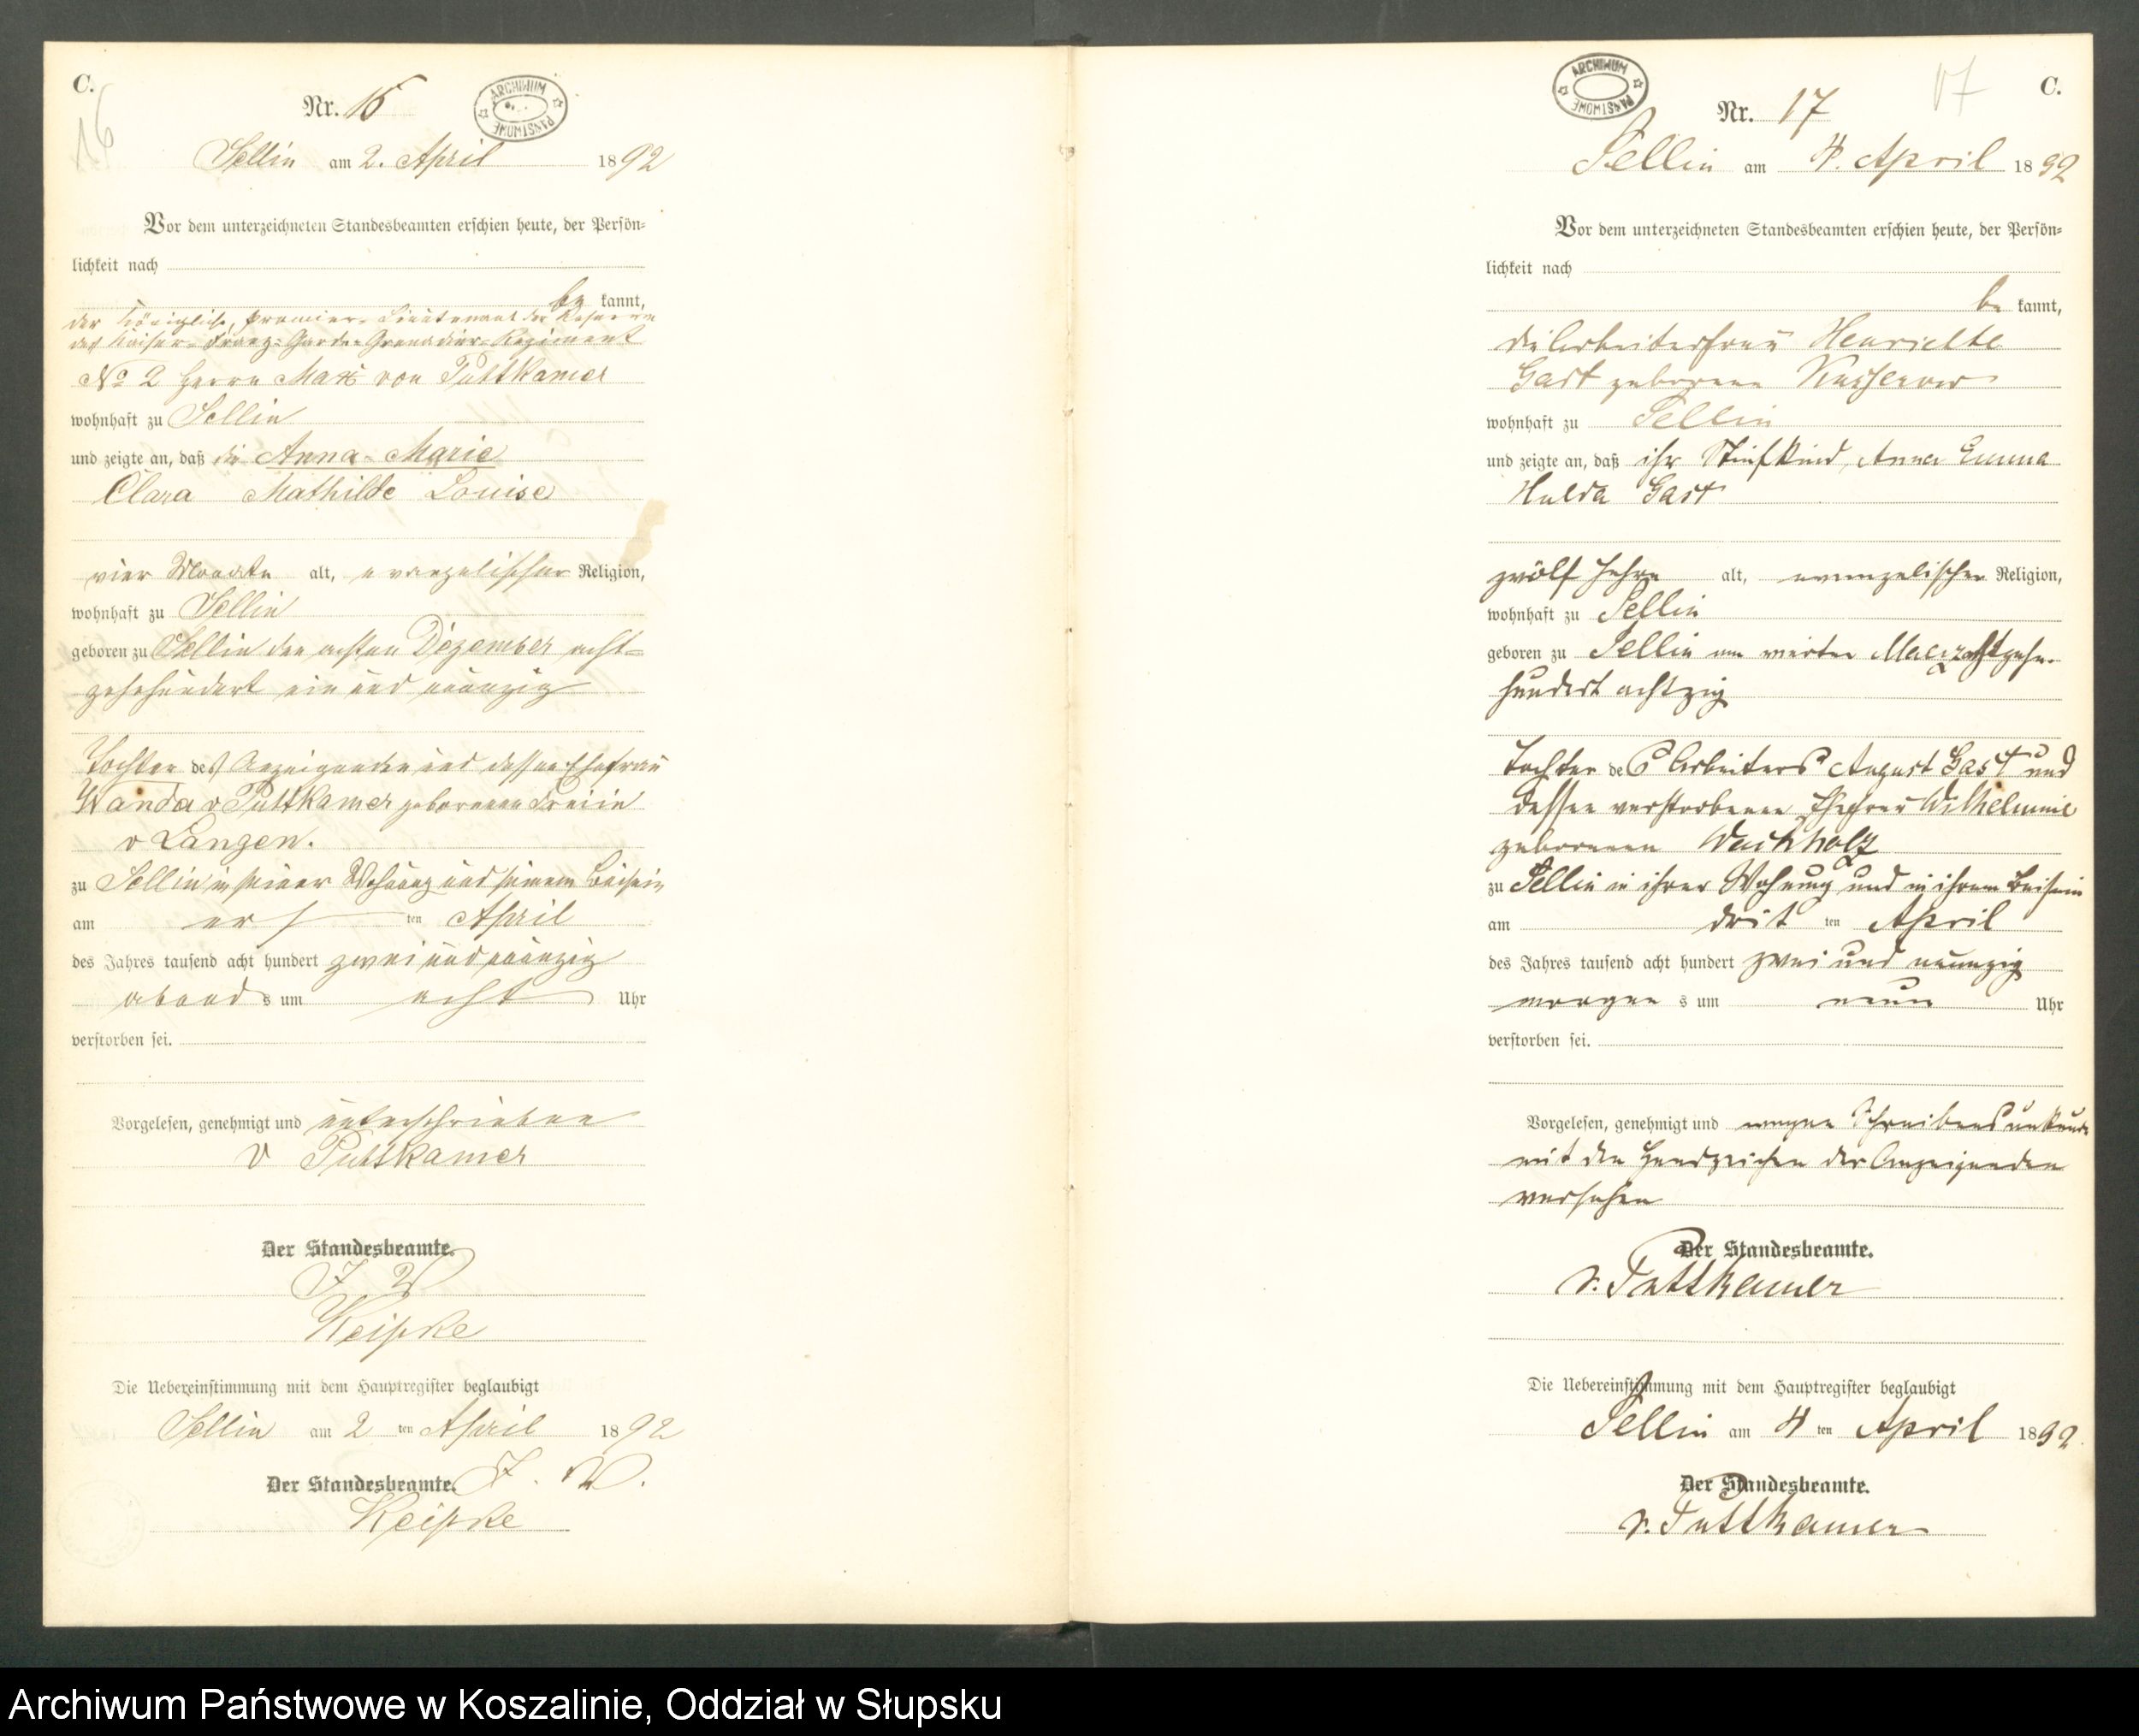 C.
16
Nr. 16
ARCHIWUM PAŃSTWOWE
Sellin am 2. April 1892
Vor dem unterzeichneten Standesbeamten erschien heute, der Persön-
lichkeit nach
be kannt,
der Königliche, Premier-Lieutenant der Reserve
des Kaiser-Franz-Garde-Grenadier-Regiment
No 2 Herr Max von Puttkamer
wohnhaft zu Sellin
und zeigte an, daß die Anna-Marie
Clara Mathilde Louise
vier Monate alt, evangelischer Religion,
wohnhaft zu Sellin
geboren zu Sellin den achten Dezember acht-
zehnhundert ein und neunzig
Tochter des Anzeigenden und dessen Ehefrau
Wanda v Puttkamer geborenen Freiin
v Langen.
zu Sellin in seiner Wohnung und seinem Beisein
am ers ten April
des Jahres tausend acht hundert zwei und neunzig
abend s um acht Uhr
verstorben sei.
Vorgelesen, genehmigt und unterschrieben
v Puttkamer
Der Standesbeamte.
J V
Keipke
Die Uebereinstimmung mit dem Hauptregister beglaubigt
Sellin am 2 ten April 1892
Der Standesbeamte. J. V.
Keipke
ARCHIWUM PAŃSTWOWE
17
C.
Nr. 17
Sellin am 4. April 1892
Vor dem unterzeichneten Standesbeamten erschien heute, der Persön-
lichkeit nach
be kannt,
die Arbeiterfrau Henriette
Gast geborene Kusserow
wohnhaft zu Sellin
und zeigte an, daß ihr Stiefkind, Anna Emma
Hulda Gast
zwölf Jahre alt, evangelischer Religion,
wohnhaft zu Sellin
geboren zu Sellin am vierten Maerz achtzehn-
hundert achtzig
Tochter des Arbeiters August Gast und
dessen verstorbenen Ehefrau Wilhelmine
geborenen Wachholz
zu Sellin in ihrer Wohnung und in ihrem Beisein
am drit ten April
des Jahres tausend acht hundert zwei und neunzig
morgen s um neun Uhr
verstorben sei.
Vorgelesen, genehmigt und wegen Schreibensunkunde
mit den Handzeichen der Anzeigenden
versehen
Der Standesbeamte.
v. Puttkamer
Die Uebereinstimmung mit dem Hauptregister beglaubigt
Sellin am 4 ten April 1892.
Der Standesbeamte.
v. Puttkamer
Archiwum Państwowe w Koszalinie, Oddział w Słupsku